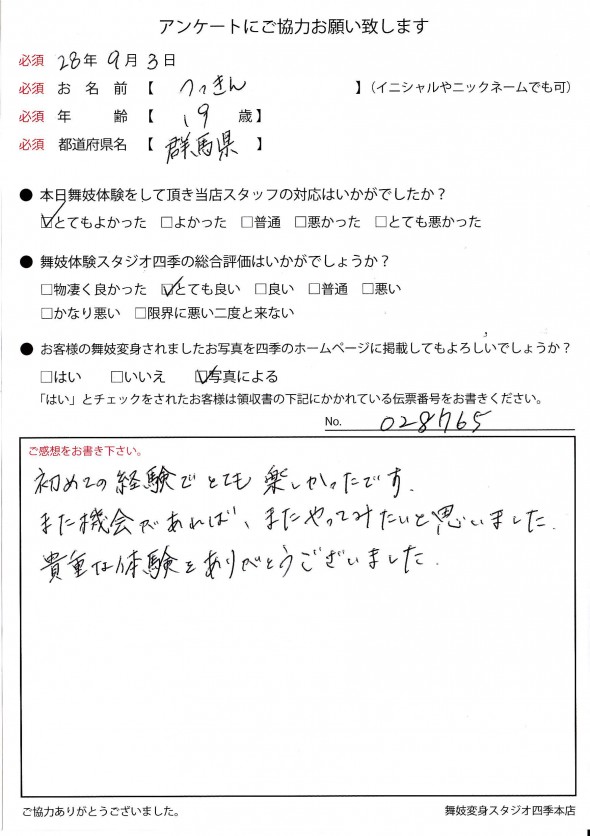 アンケートにご協力お願い致します
必須 28年 9月 3日
必須 お名前【 つっきん 】（イニシャルやニックネームでも可）
必須 年齢【 19 歳】
必須 都道府県名【 群馬県 】
● 本日舞妓体験をして頂き当店スタッフの対応はいかがでしたか？
☑とてもよかった □よかった □普通 □悪かった □とても悪かった
● 舞妓体験スタジオ四季の総合評価はいかがでしょうか？
□物凄く良かった ☑とても良い □良い □普通 □悪い
□かなり悪い □限界に悪い二度と来ない
● お客様の舞妓変身されましたお写真を四季のホームページに掲載してもよろしいでしょうか？
□はい □いいえ ☑写真による
「はい」とチェックをされたお客様は領収書の下記にかかれている伝票番号をお書きください。
No. 028765
ご感想をお書き下さい。
初めての経験でとても楽しかったです.
また機会があれば、またやってみたいと思いました.
貴重な体験をありがとうございました.
ご協力ありがとうございました。
舞妓変身スタジオ四季本店